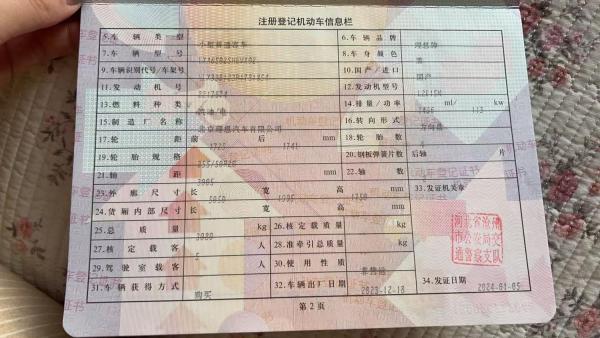 注册登记机动车信息栏
5.车辆类型 小型普通客车 6.车辆品牌 理想牌
7.车辆型号 8.车身颜色 黑
9.车辆识别代号/车架号 10.国产/进口 国产
11.发动机号 12.发动机型号
13.燃料种类 汽油/电 14.排量/功率 ml/ 113 kw
15.制造厂名称 北京理想汽车有限公司 16.转向形式 方向盘
17.轮距 前 1725 后 1741 mm 18.轮胎数
19.轮胎规格 20.钢板弹簧片数 后轴 片
21.轴距 3005 mm 22.轴数
23.外廓尺寸 长 5050 宽 1995 高 1750 mm 33.发证机关章
24.货厢内部尺寸 长 宽 高 mm
25.总质量 kg 26.核定载质量 kg
27.核定载客 5 人 28.准牵引总质量 kg
29.驾驶室载客 人 30.使用性质 非营运
31.车辆获得方式 购买 32.车辆出厂日期 2023-12-18 34.发证日期 2024-01-05
河北省沧州
市公安局交
通警察支队
第2页